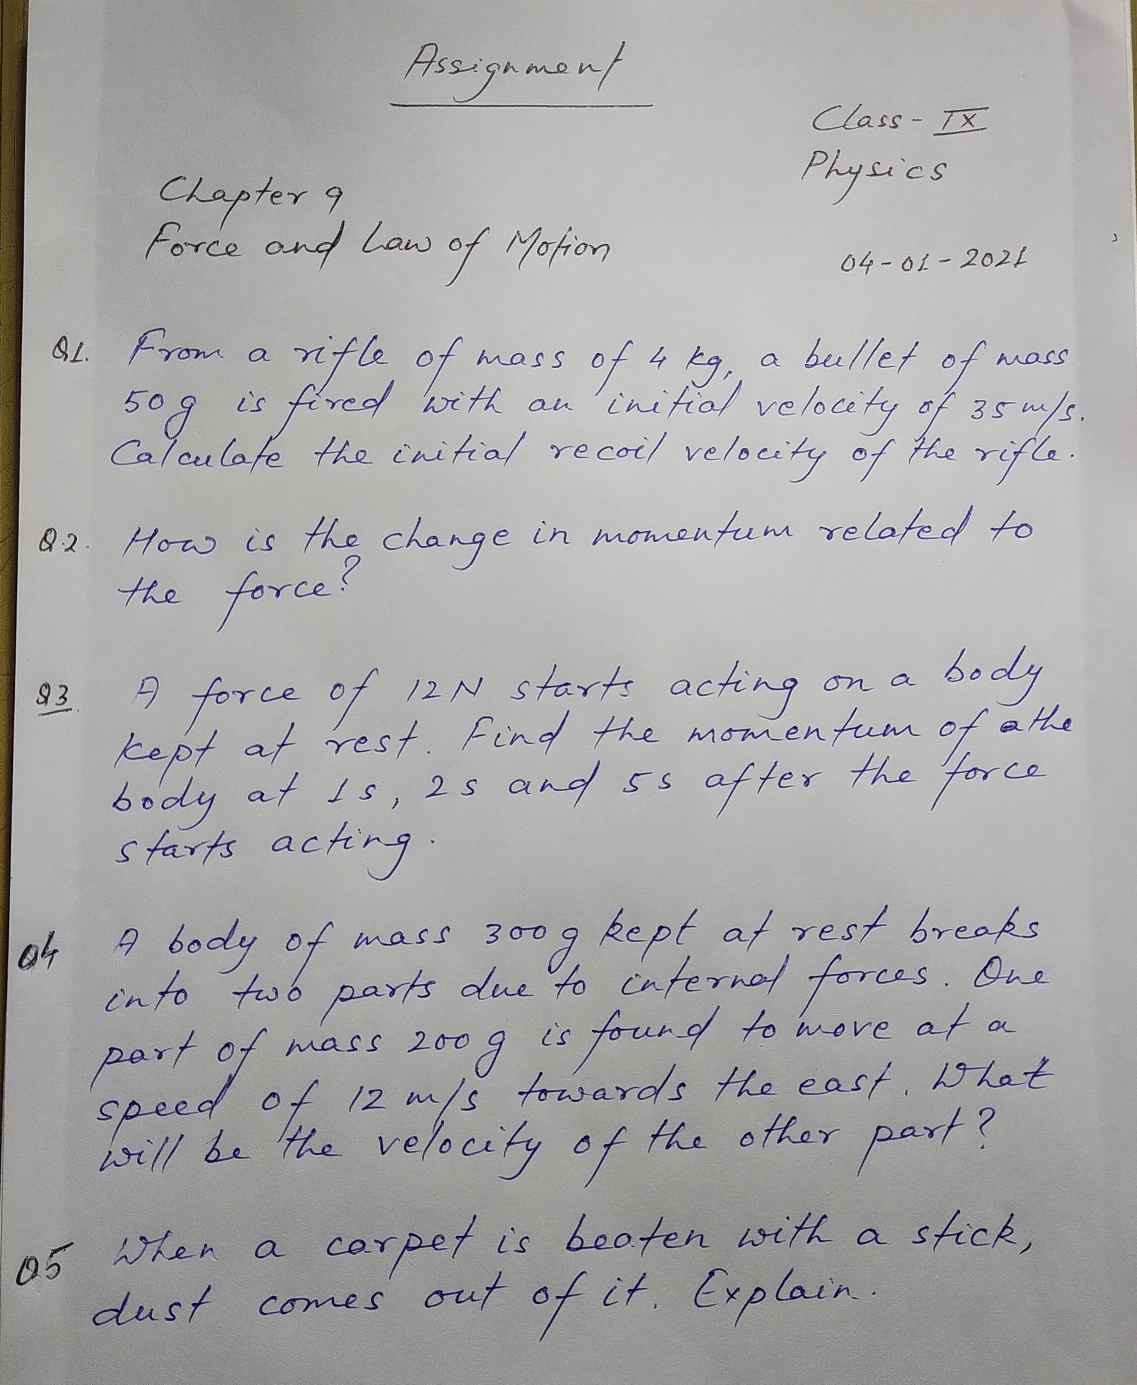 Assignment
Class - IX
Physics
Chapter 9
Force and Law of Motion
04-01-2021
Q1. From a rifle of mass of 4 kg, a bullet of mass
50g is fired with an initial velocity of 35 m/s.
Calculate the initial recoil velocity of the rifle.
Q.2. How is the change in momentum related to
the force?
Q3. A force of 12N starts acting on a body
kept at rest. Find the momentum of a the
body at 1s, 2s and 5s after the force
starts acting.
Q4 A body of mass 300g kept at rest breaks
into two parts due to internal forces. One
part of mass 200g is found to move at a
speed of 12 m/s towards the east. What
will be the velocity of the other part?
Q5 When a carpet is beaten with a stick,
dust comes out of it. Explain.